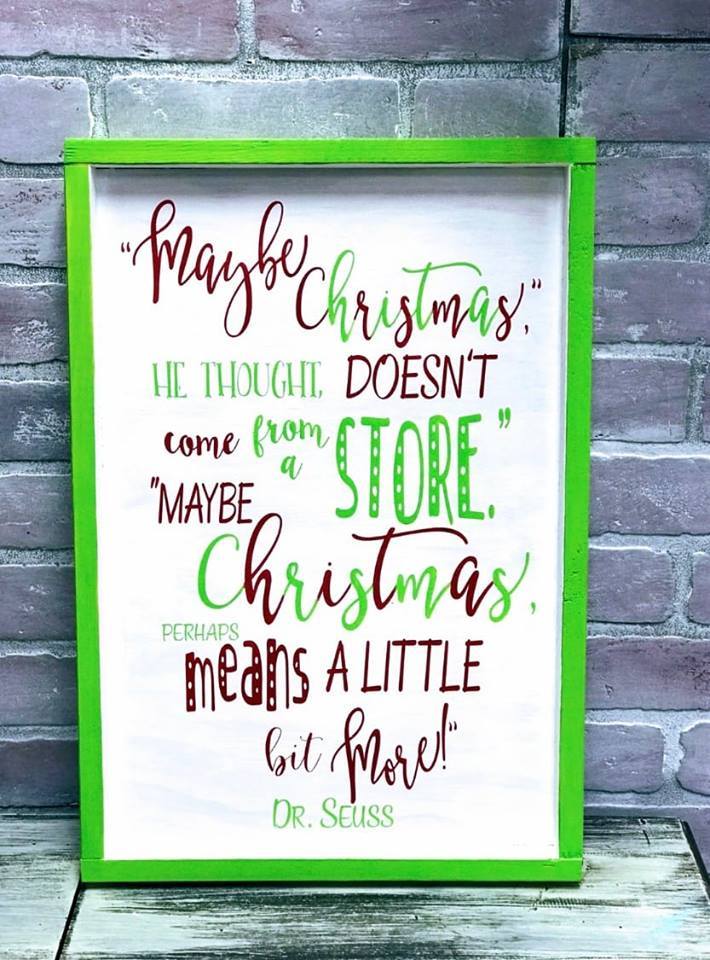 “Maybe
Christmas,”
HE THOUGHT, DOESN'T
come from
a STORE.”
"MAYBE
Christmas,
PERHAPS
means A LITTLE
bit More!"
DR. SEUSS